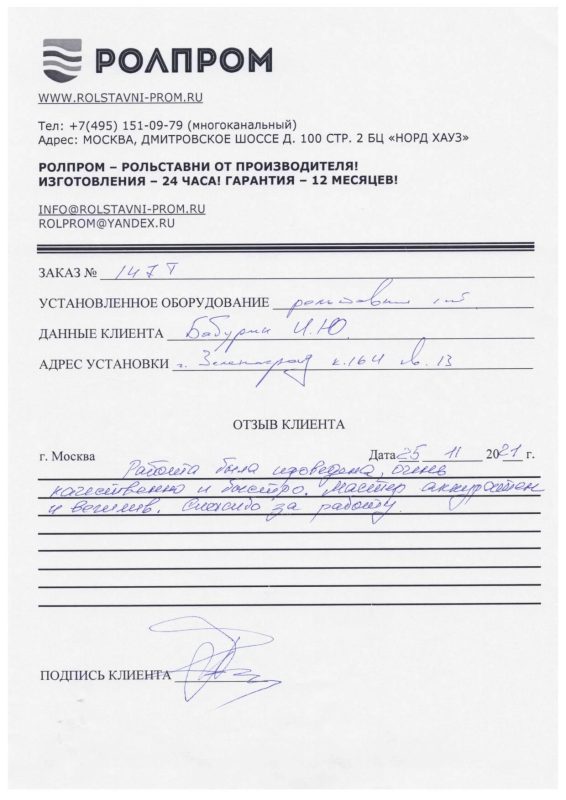 РОЛПРОМ
WWW.ROLSTAVNI-PROM.RU
Тел: +7(495) 151-09-79 (многоканальный)
Адрес: МОСКВА, ДМИТРОВСКОЕ ШОССЕ Д. 100 СТР. 2 БЦ «НОРД ХАУЗ»
РОЛПРОМ – РОЛЬСТАВНИ ОТ ПРОИЗВОДИТЕЛЯ!
ИЗГОТОВЛЕНИЯ – 24 ЧАСА! ГАРАНТИЯ – 12 МЕСЯЦЕВ!
INFO@ROLSTAVNI-PROM.RU
ROLPROM@YANDEX.RU
ЗАКАЗ № 147Т
УСТАНОВЛЕННОЕ ОБОРУДОВАНИЕ рольставни 1
ДАННЫЕ КЛИЕНТА Бабурин И.Ю.
АДРЕС УСТАНОВКИ г. Зеленоград к.164 кв. 13
ОТЗЫВ КЛИЕНТА
г. Москва Дата 25 11 2021 г.
Работа была проведена, очень
качественно и быстро. Мастер аккуратен
и вежлив. Спасибо за работу
ПОДПИСЬ КЛИЕНТА